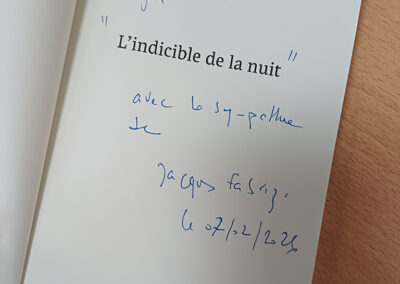 " L'indicible de la nuit "
avec la sympathie
de
Jacques
le 07/02/2026